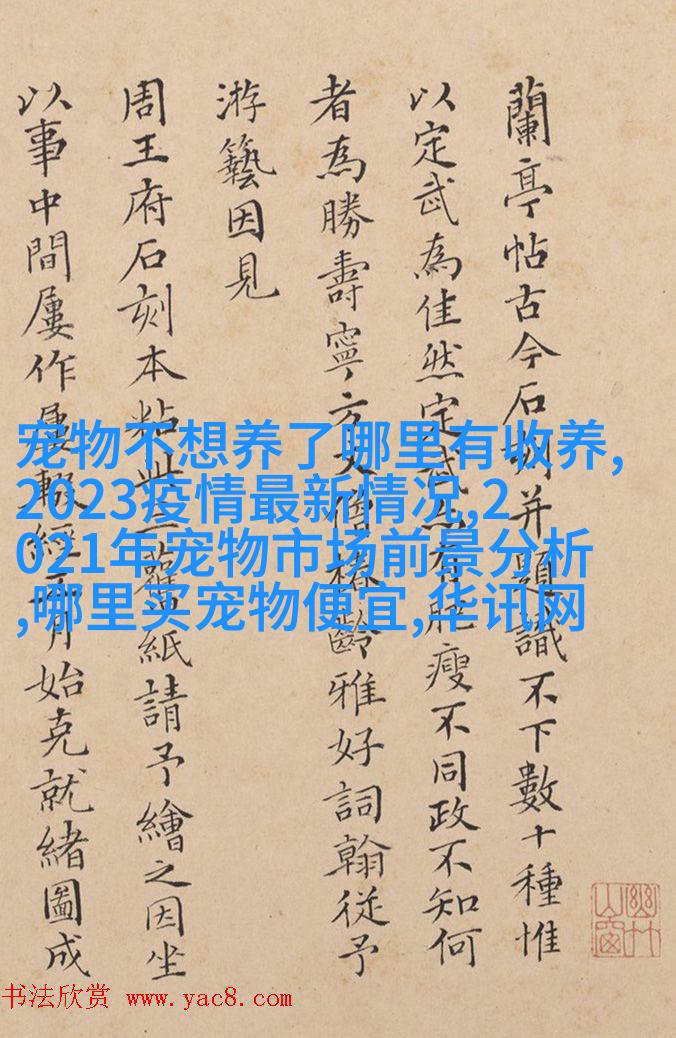 蘭亭帖古今石刻并題識不下數十種惟
以定武為佳然定武亦有肥瘦不同政不知何
者為勝壽寧方丈僧椿齡雅好詞翰從予
游藝因見
周王府石刻本粘此一舊紙請予繪之因坐
以事中間屢作屢輟經月始克就緒圖成
幽竹山窗
宠物不想养了哪里有收养,
2023疫情最新情况,2
021年宠物市场前景分析
,哪里买宠物便宜,华讯网
书法欣赏 www.yac8.com